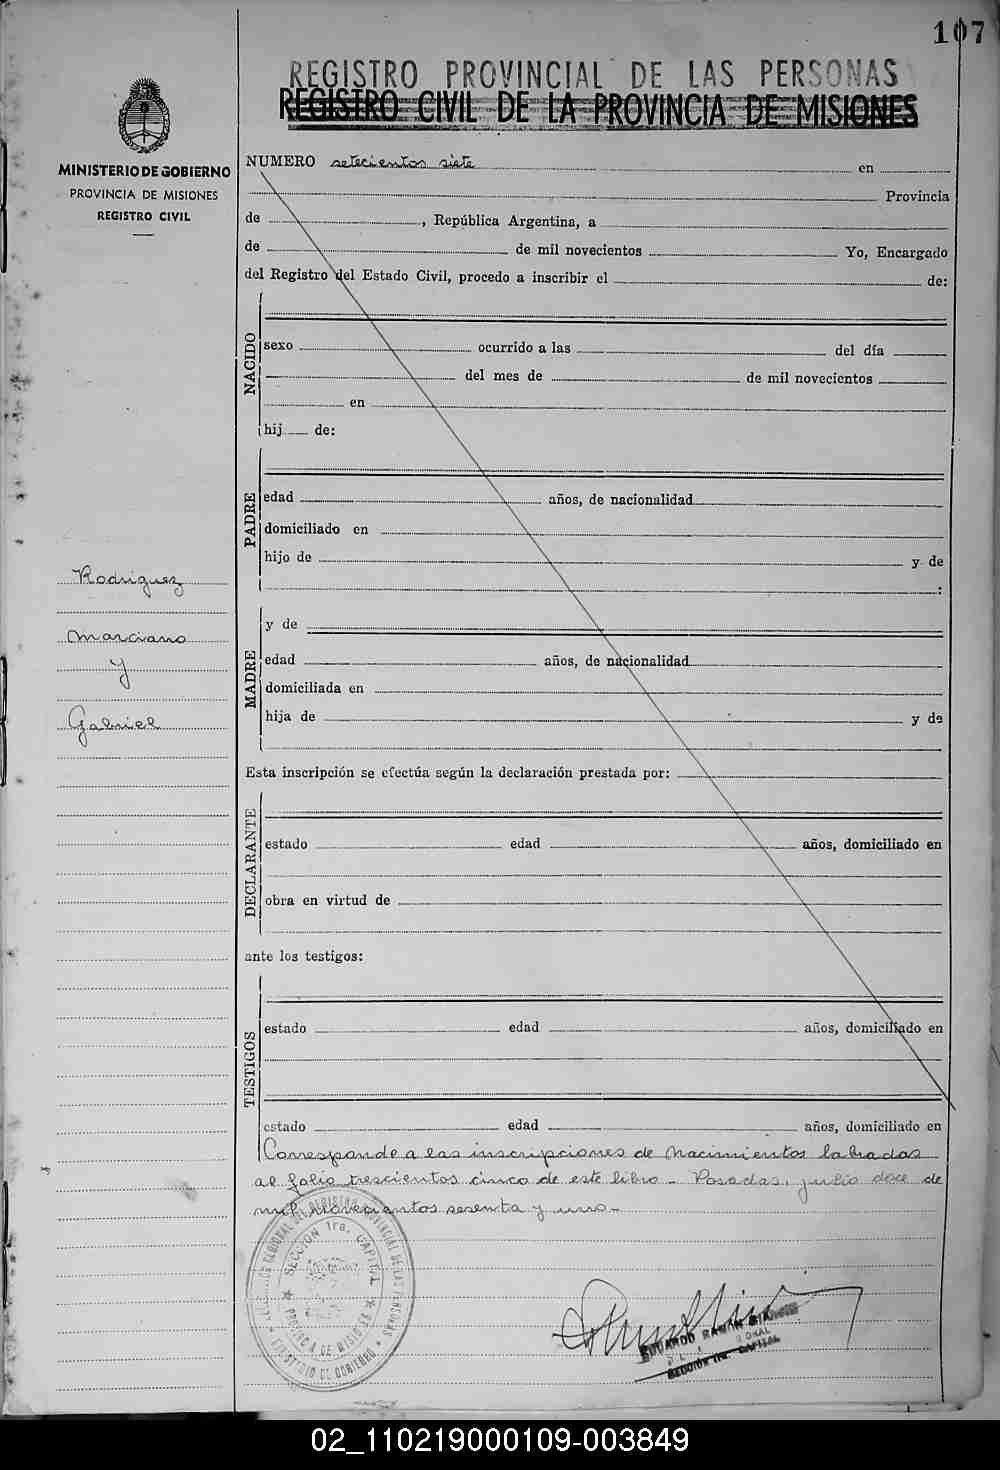 107
REGISTRO PROVINCIAL DE LAS PERSONAS
REGISTRO CIVIL DE LA PROVINCIA DE MISIONES
MINISTERIO DE GOBIERNO
PROVINCIA DE MISIONES
REGISTRO CIVIL
NUMERO setecientos siete en
Provincia
de , República Argentina, a
de de mil novecientos Yo, Encargado
del Registro del Estado Civil, procedo a inscribir el de:
NACIDO
sexo ocurrido a las del día
del mes de de mil novecientos
en
hij de:
PADRE
edad años, de nacionalidad
domiciliado en
hijo de y de
:
Rodriguez
Marciano
y
Gabriel
MADRE
y de
edad años, de nacionalidad
domiciliada en
hija de y de
Esta inscripción se efectúa según la declaración prestada por:
DECLARANTE
estado edad años, domiciliado en
obra en virtud de
ante los testigos:
TESTIGOS
estado edad años, domiciliado en
estado edad años, domiciliado en
Corresponde a las inscripciones de Nacimientos labradas
al folio trescientos cinco de este libro - Posadas, julio doce de
mil novecientos sesenta y uno -
DEL REGISTRO PROVINCIAL DE LAS PERSONAS
SECCION 1ra. CAPITAL
PROVINCIA DE MISIONES
MINISTERIO DE GOBIERNO
EDUARDO RAMON
SECCION 1ra. CAPITAL
02_110219000109-003849